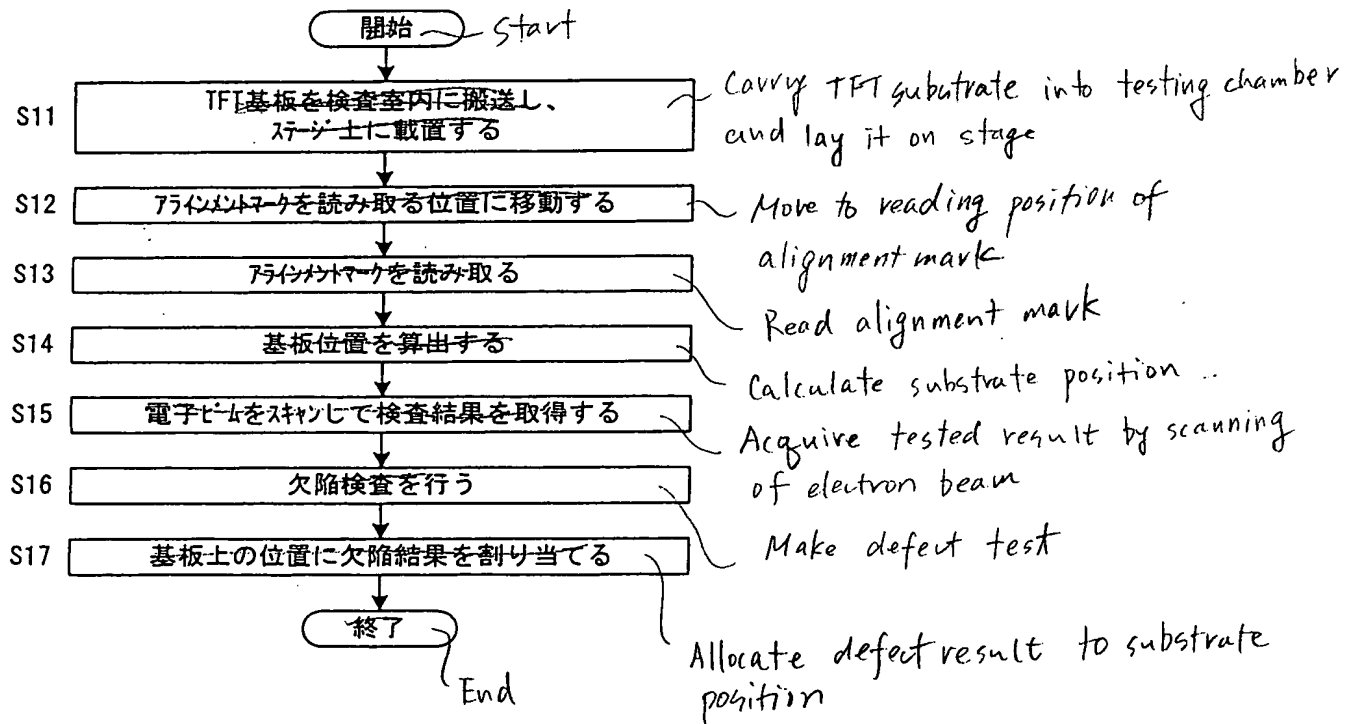 開始
Start
S11
TFT基板を検査室内に搬送し、
ステージ上に載置する
Carry TFT substrate into testing chamber
and lay it on stage
S12
アラインメントマークを読み取る位置に移動する
Move to reading position of
alignment mark
S13
アラインメントマークを読み取る
Read alignment mark
S14
基板位置を算出する
Calculate substrate position
S15
電子ビームをスキャンして検査結果を取得する
Acquire tested result by scanning
of electron beam
S16
欠陥検査を行う
Make defect test
S17
基板上の位置に欠陥結果を割り当てる
Allocate defect result to substrate
position
終了
End